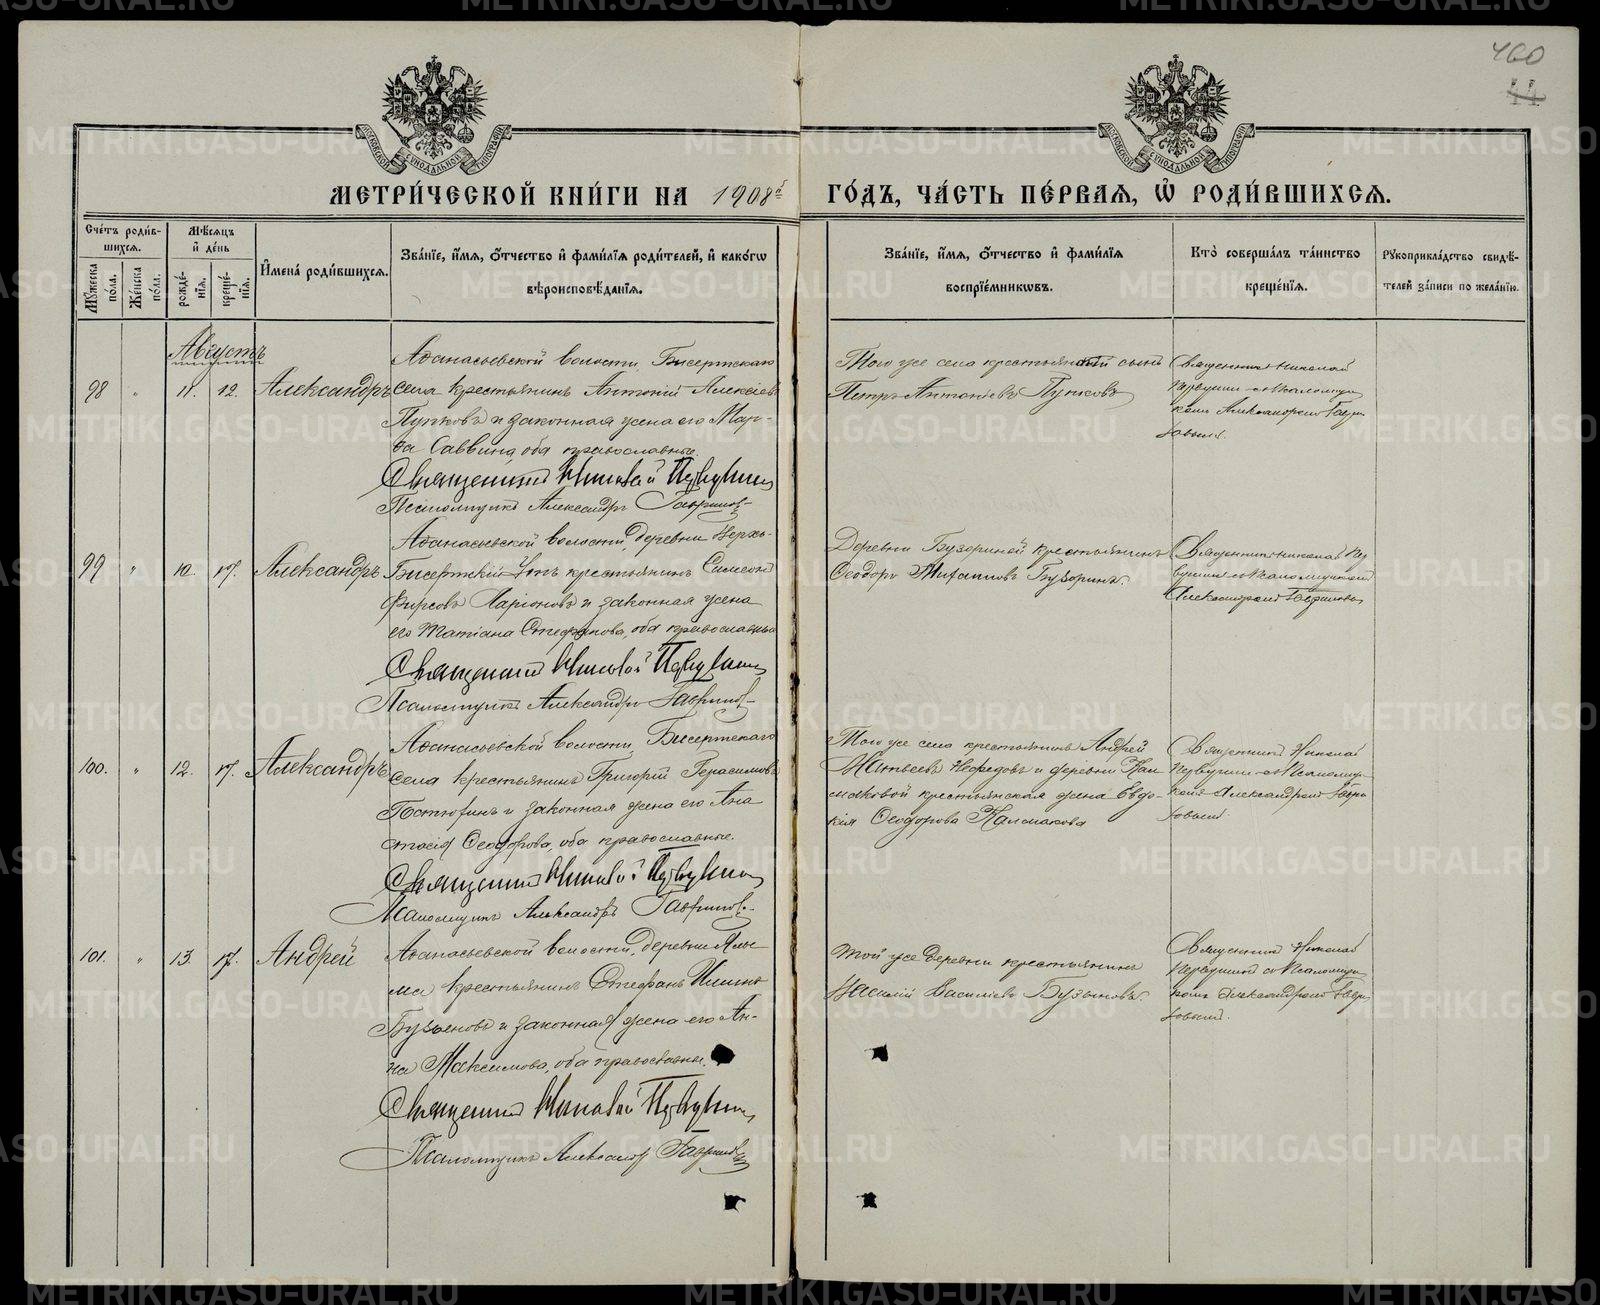 460
44
МОСКОВСКОЙ СѴНОДАЛЬНОЙ ТИПОГРАФІИ
МОСКОВСКОЙ СѴНОДАЛЬНОЙ ТИПОГРАФІИ
МЕТРИ́ЧЕСКОЙ КНИ́ГИ НА 1908й
ГО́ДЪ, ЧА́СТЬ ПЕ́РВАЯ, Ѡ҆ РОДИ́ВШИХСЯ.
Сче́тъ роди́в-
шихся.
Мꙋ́жеска по́ла.
Же́нска по́ла.
Мѣ́сяцъ
и҆ де́нь
рожде́-
нїѧ.
креще́-
нїѧ.
И҆мена̀ роди́вшихся.
Зва́нїе, и҆́мя, ѻ҆́тчество и҆ фами́лїѧ роди́телей, и҆ како́гѡ
вѣроисповѣ́данїѧ.
Зва́нїе, и҆́мя, ѻ҆́тчество и҆ фами́лїѧ
воспрїе́мникѡвъ.
Кто̀ соверша́лъ та́инство
креще́нїѧ.
Рꙋкоприкла́дство свидѣ́-
телей за́писи по жела́нїю.
Августъ
98 " 11. 12. Александръ
Афанасьевской волости, Бисертскаго
села крестьянинъ Антоній Алексіевъ
Пупковъ и законная жена его Мар-
фа Саввина, оба православные.
Священникъ Николай Первушинъ
Псаломщикъ Александръ Гавриловъ
Того же села крестьянскій сынъ
Петръ Антоніевъ Пупковъ
Священникъ Николай
Первушинъ съ Псаломщи-
комъ Александромъ Гаври-
ловымъ.
99 " 10. 17. Александръ
Афанасьевской волости, деревни Верхъ-
Бисертскій Утъ крестьянинъ Симеонъ
Фирсовъ Ларіоновъ и законная жена
его Татіана Стефанова, оба православные
Священникъ Николай Первушинъ
Псаломщикъ Александръ Гавриловъ
Деревни Бузориной крестьянинъ
Ѳеодоръ Михаиловъ Бузоринъ.
Священникъ Николай Пер-
вушинъ съ Псаломщикомъ
Александромъ Гавриловымъ
100. " 12. 17. Александръ
Афанасьевской волости, Бисертскаго
села крестьянинъ Григорій Герасимовъ
Потютинъ и законная жена его Ана-
стасія Ѳеодорова, оба православные.
Священникъ Николай Первушинъ
Псаломщикъ Александръ Гавриловъ.
Того же села крестьянинъ Андрей
Матвеевъ Нефедовъ и деревни Кал-
маковой крестьянская жена Евдо-
кія Ѳеодорова Калмакова
Священникъ Николай
Первушинъ съ Псаломщи-
комъ Александромъ Гаври-
ловымъ.
101. " 13. 17. Андрей
Афанасьевской волости, деревни
ма крестьянинъ Стефанъ
и законная жена его Ан-
на Максимова, оба православные.
Священникъ Николай Первушинъ
Псаломщикъ Александръ Гавриловъ
Той же деревни крестьянинъ
Василій Васильевъ
Священникъ Николай
Первушинъ съ Псаломщи-
комъ Александромъ Гаври-
ловымъ.
METRIKI.GASO-URAL.RU